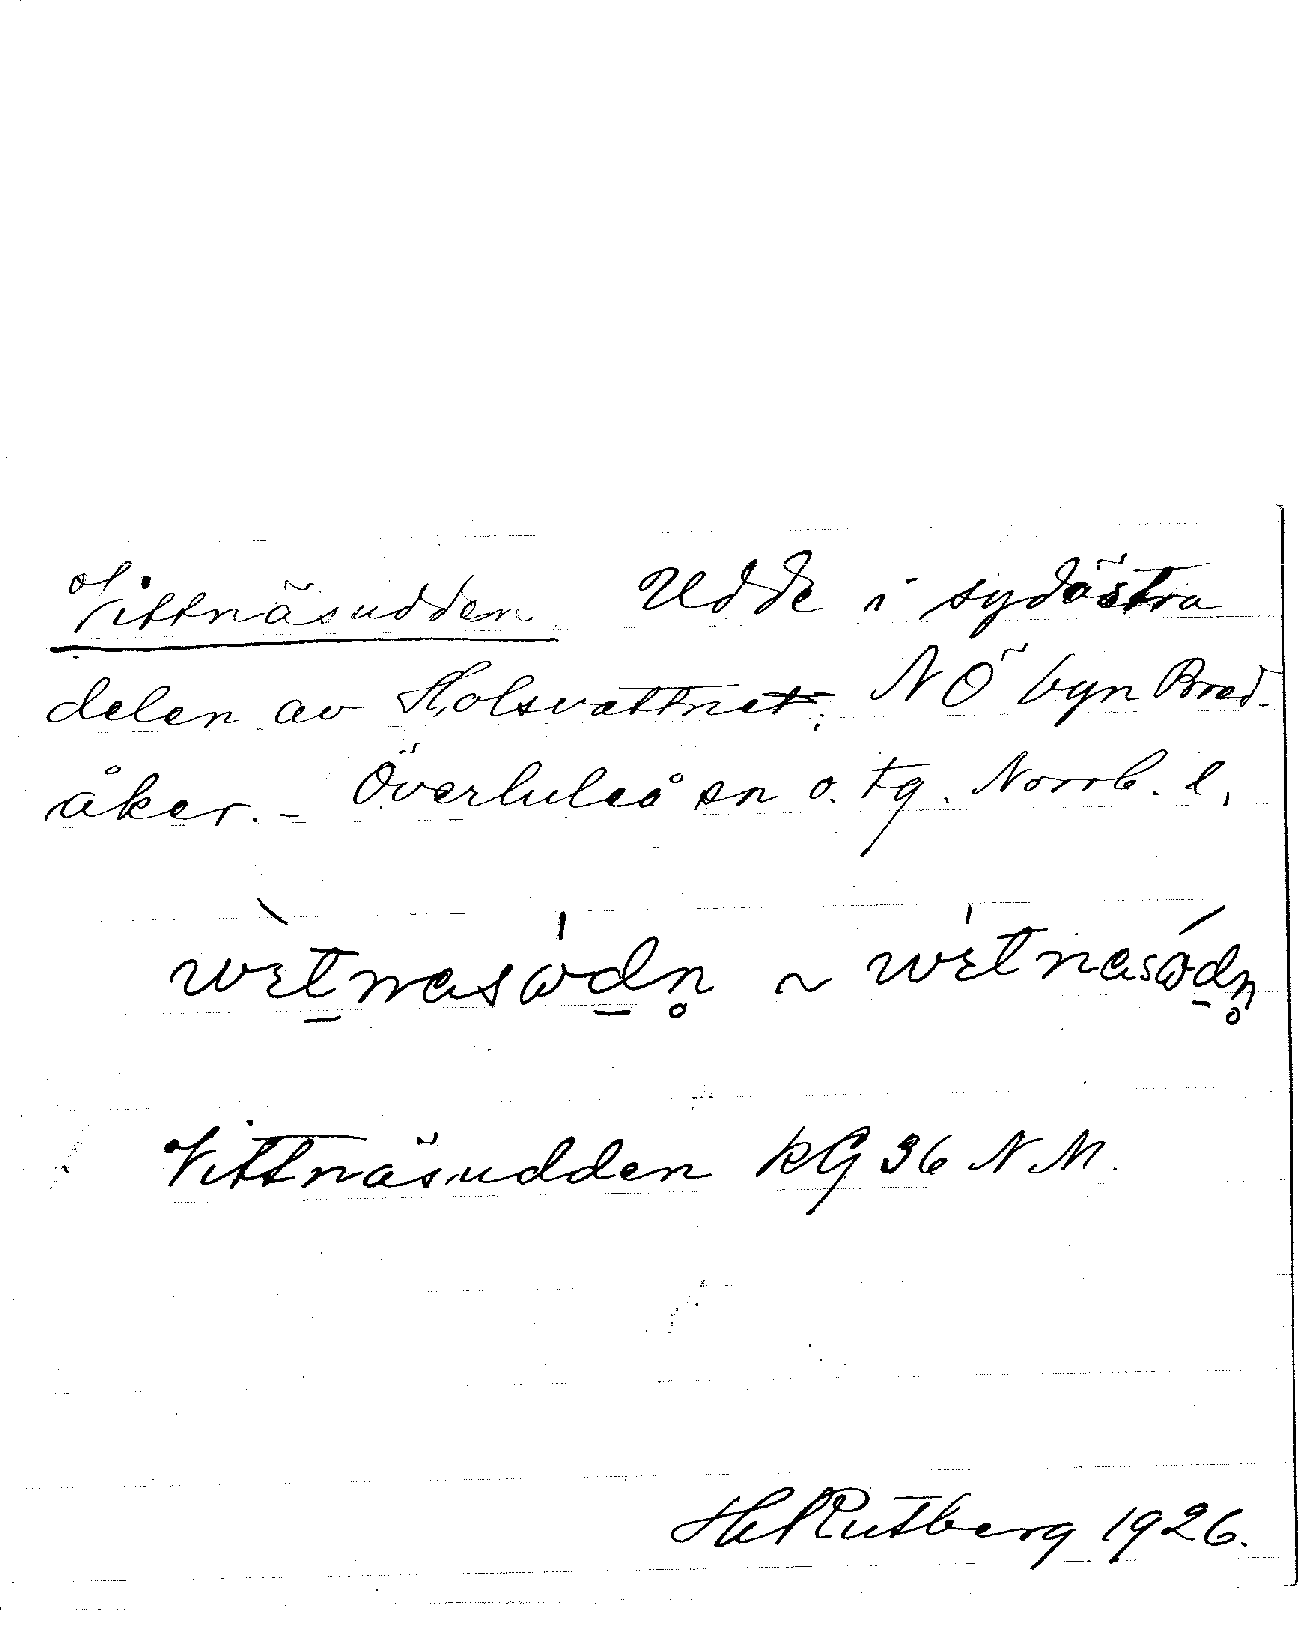 Vittnäsudden Udde i sydöstra
delen av Holsvattnet, NÖ byn Bred-
åker. – Överluleå sn o. tg. Norrb. l.
wètnasɷ̀dn̥ ~ wètnasɷ́dn̥
Vittnäsudden KG 36 N M.
H Rutberg 1926.